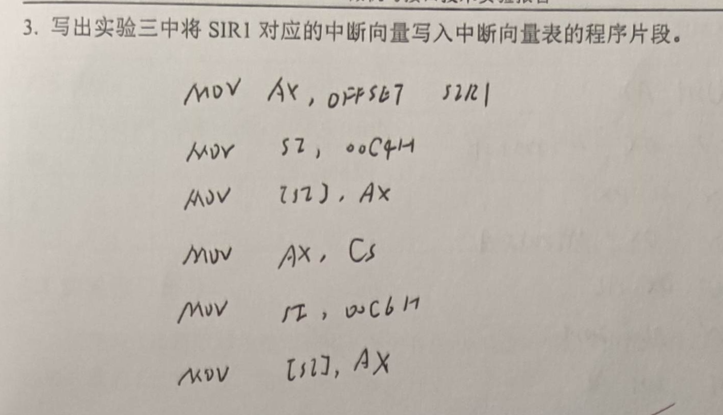 3. 写出实验三中将 SIR1 对应的中断向量写入中断向量表的程序片段。
MOV AX, OFFSET SIR1
MOV SI, 00C4H
MOV [SI], AX
MOV AX, CS
MOV SI, 00C6H
MOV [SI], AX